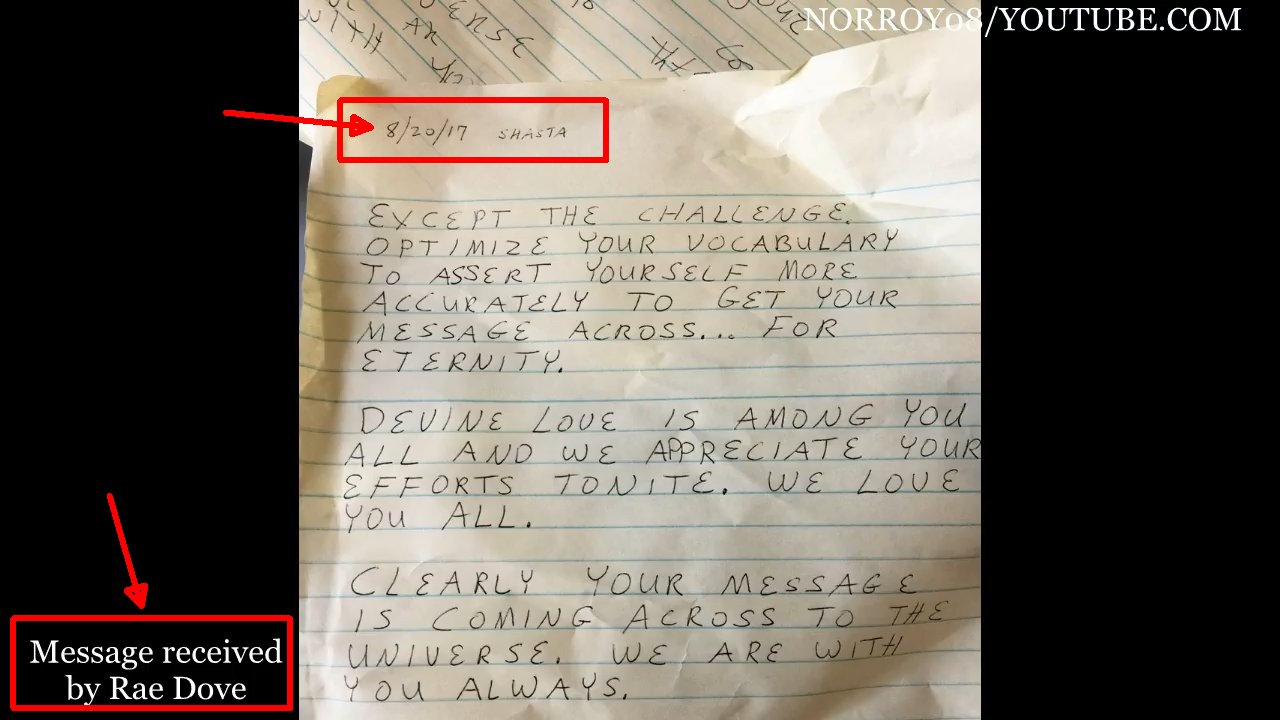 NORROY08/YOUTUBE.COM
8/20/17 SHASTA
EXCEPT THE CHALLENGE.
OPTIMIZE YOUR VOCABULARY
TO ASSERT YOURSELF MORE
ACCURATELY TO GET YOUR
MESSAGE ACROSS... FOR
ETERNITY.
DEVINE LOVE IS AMONG YOU
ALL AND WE APPRECIATE YOUR
EFFORTS TONITE. WE LOVE
YOU ALL.
CLEARLY YOUR MESSAGE
IS COMING ACROSS TO THE
UNIVERSE. WE ARE WITH
YOU ALWAYS.
Message received
by Rae Dove